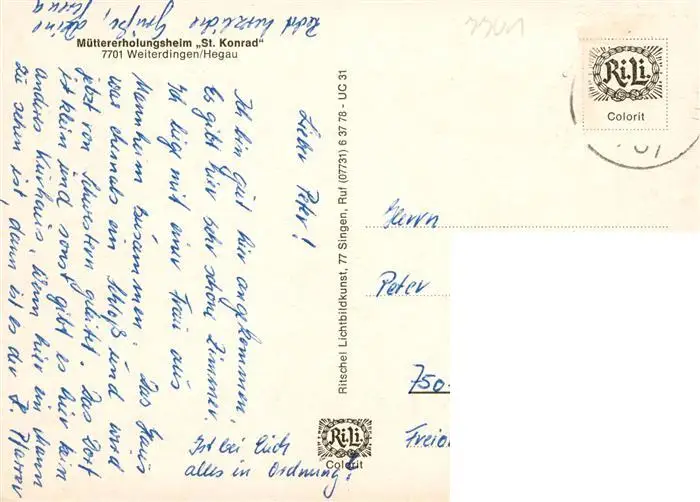 Müttererholungsheim „St. Konrad“
7701 Weiterdingen/Hegau
Lieber Peter!
Ich bin gut hier angekommen.
Es gibt hier sehr schöne Zimmer.
Ich liege mit einer Frau aus
Mannheim zusammen. Das Haus
war ehemals ein Schloß und wird
jetzt von Schwestern geleitet. Das Dorf
ist klein und sonst gibt es hier kein
anderes Kurhaus. Wenn hier ein Mann
zu sehen ist, dann ist es der H. Pfarrer
Recht herzliche Grüße, Deine
Ist bei Euch
alles in Ordnung?
Ritschel Lichtbildkunst, 77 Singen, Ruf (07731) 6 37 78 - UC 31
Ri.Li.
Colorit
Ri.Li.
Colorit
Herrn
Peter
750
7701